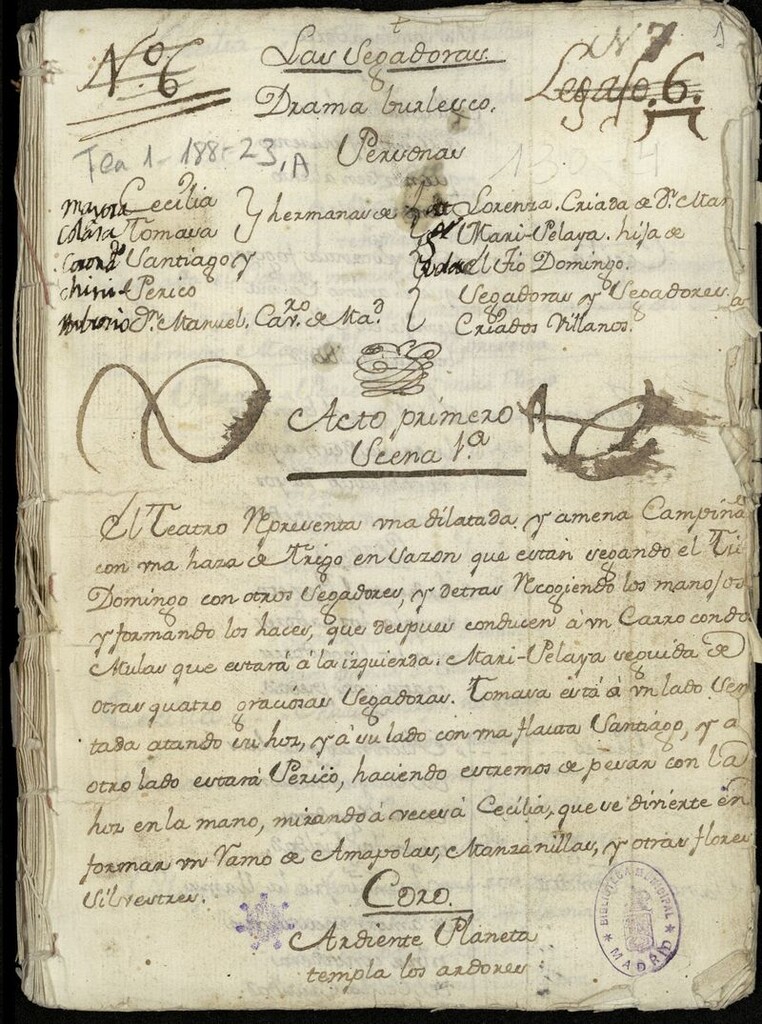 Nº 6
Las Segadoras.
N 7
1
Legajo. 6.
Drama burlesco.
Tea 1-188-23, A
Personas
Mayora Cecilia
Tomasa
} hermanas de
Santiago y
Perico
Dn. Manuel. Cavro. de Mad.
Lorenza. Criada de Dn. Man
Mari-Pelaya. hija de
el Tio Domingo.
Segadoras y Segadores.
Criados Villanos.
Acto primero
Scena 1.a
El Teatro Representa una dilatada y amena Campiña
con una haza de Trigo en sazon que estan segando el Tio
Domingo con otros Segadores, y detras Recogiendo los manojos
y formando los haces, que despues conducen à un Carro con do
Mulas que estará á la izquierda. Mari-Pelaya seguida de
otras quatro graciosas Segadoras. Tomasa está á un lado Sen
tada atando su hoz, y á su lado con una flauta Santiago, y a
otro lado estará Perico, haciendo estremos de pesar con la
hoz en la mano, mirando á veces á Cecilia, que se divierte en
formar un Ramo de Amapolas, Manzanillas, y otras flores
silvestres.
Coro.
Ardiente Planeta
templa los ardores
BIBLIOTECA MUNICIPAL
* MADRID *